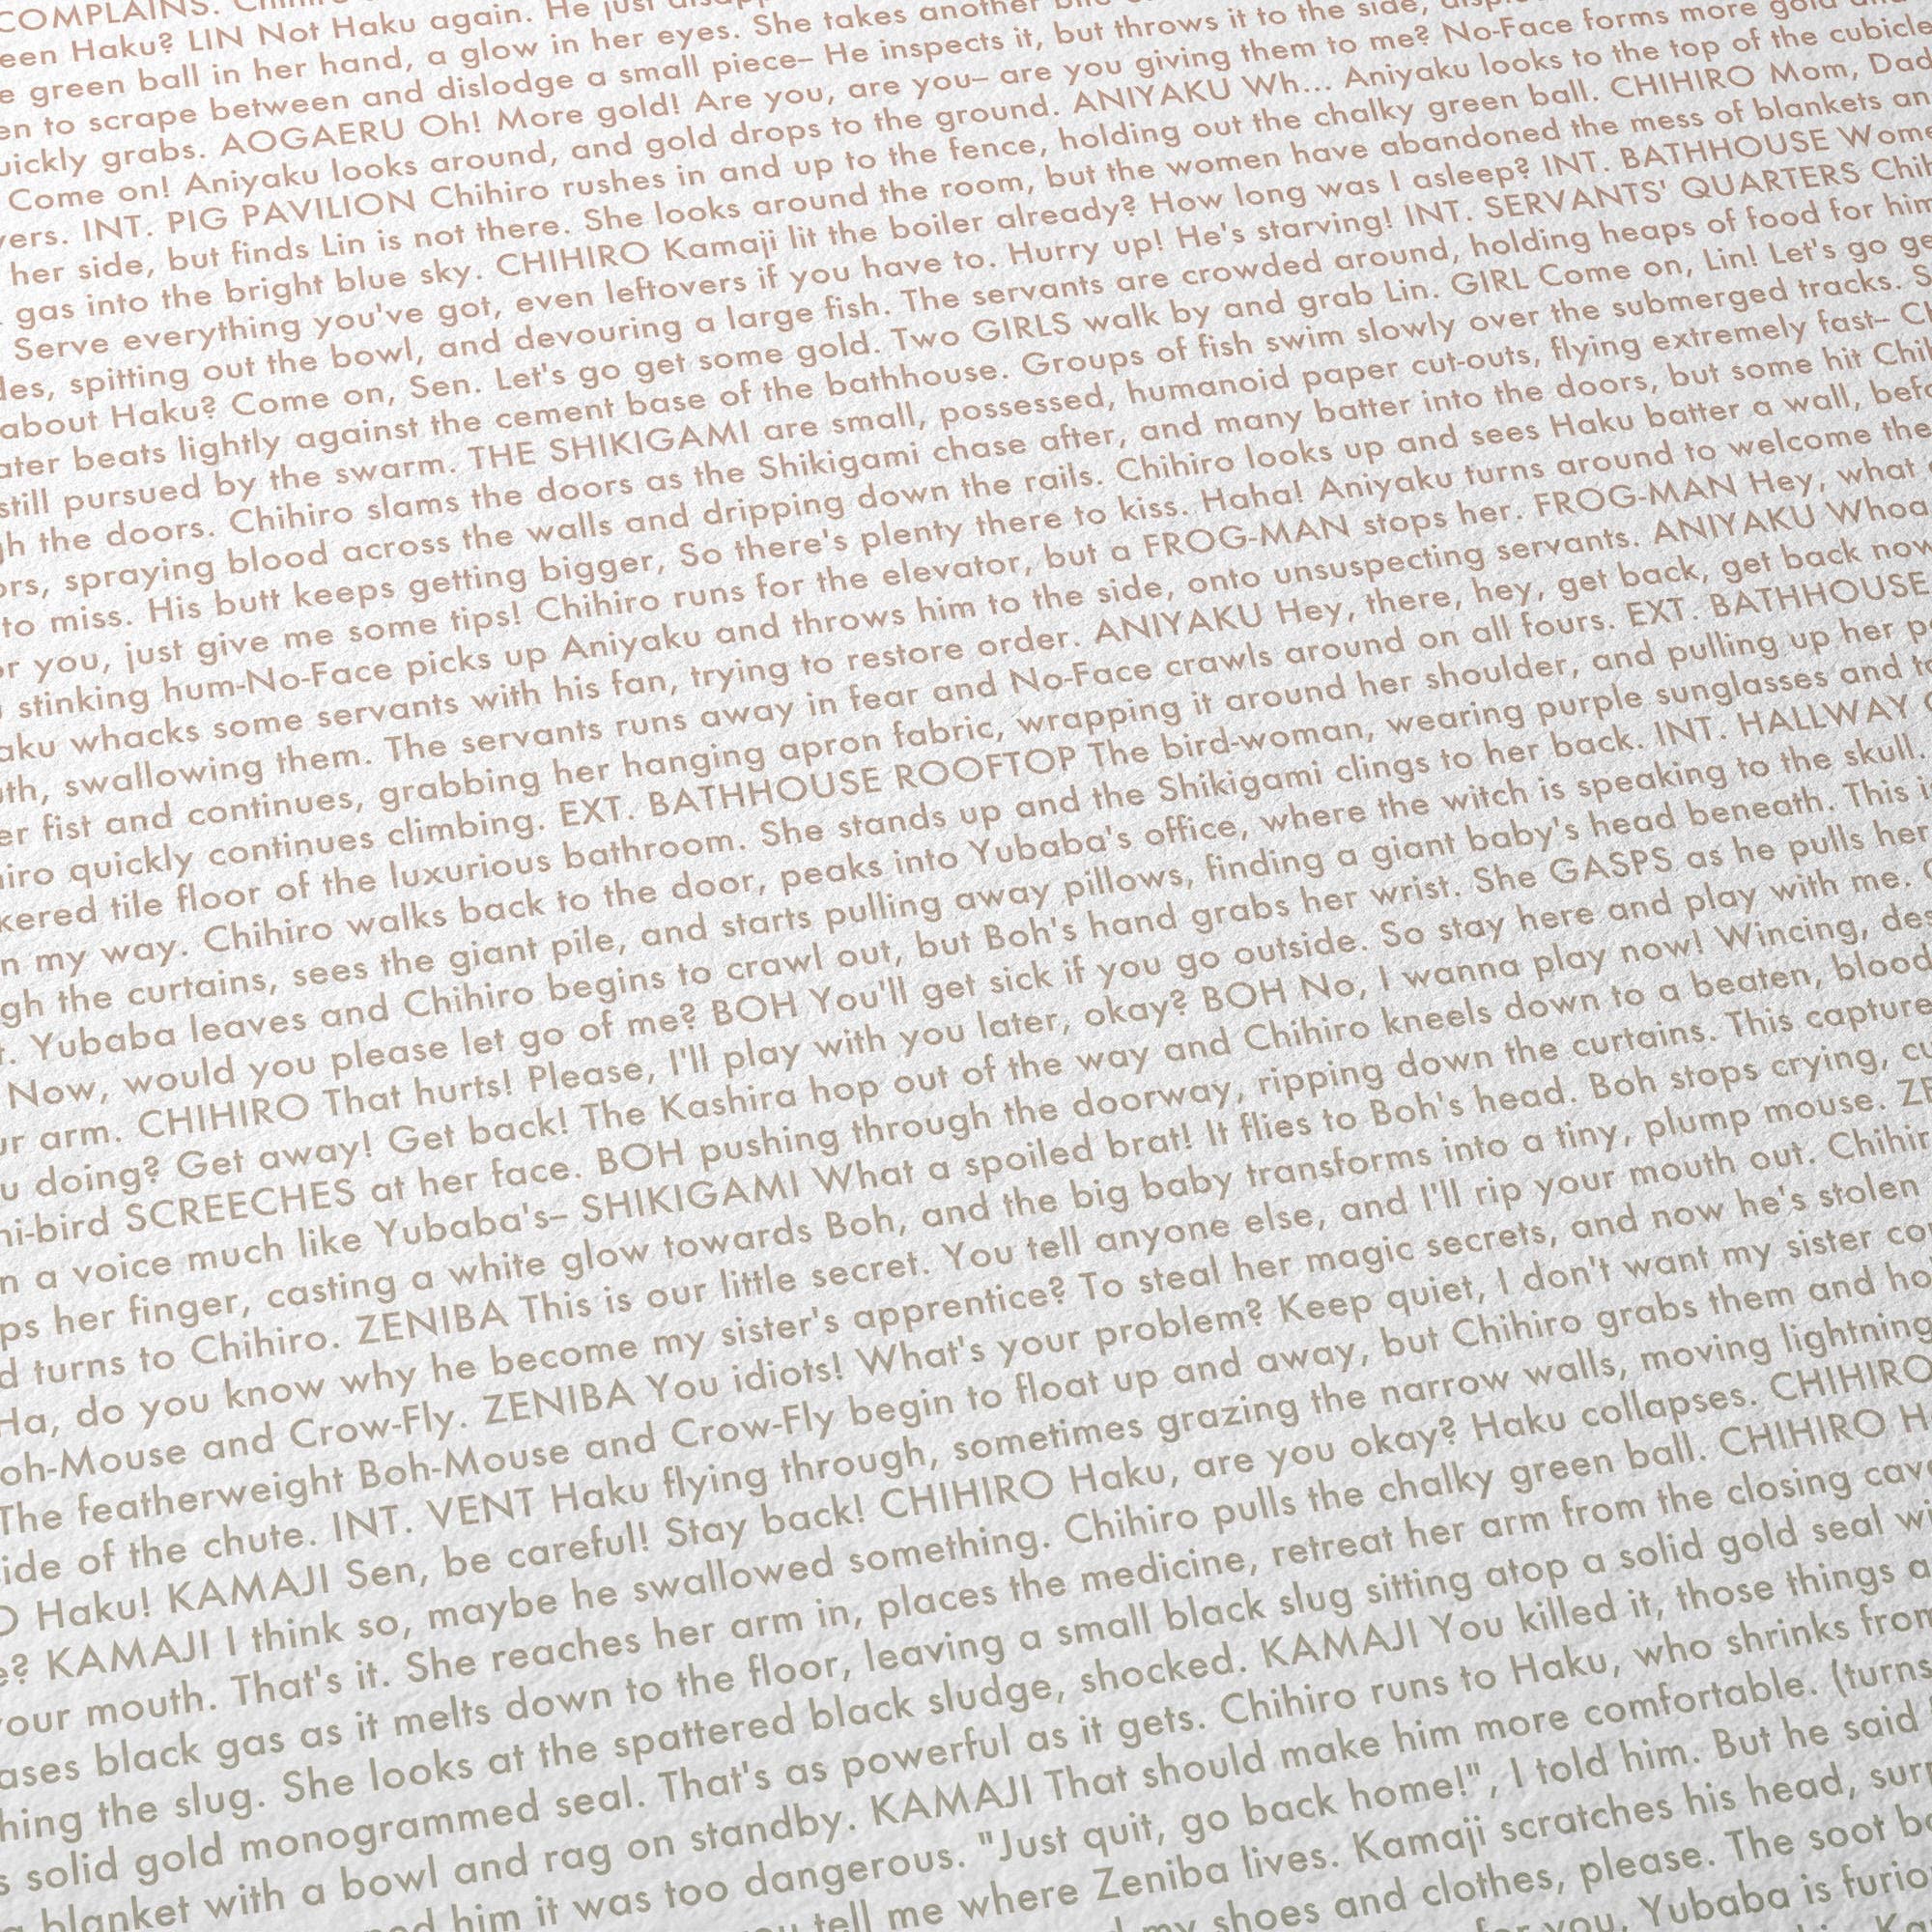 COMPLAINS.
een Haku? LIN Not Haku again. He just
e green ball in her hand, a glow in her eyes. She takes another
en to scrape between and dislodge a small piece– He inspects it, but throws it to the side,
uickly grabs. AOGAERU Oh! More gold! Are you, are you– are you giving them to me? No-Face forms more gold
Come on! Aniyaku looks around, and gold drops to the ground. ANIYAKU Wh... Aniyaku looks to the top of the cubicle
yers. INT. PIG PAVILION Chihiro rushes in and up to the fence, holding out the chalky green ball. CHIHIRO Mom, Dad
her side, but finds Lin is not there. She looks around the room, but the women have abandoned the mess of blankets an
gas into the bright blue sky. CHIHIRO Kamaji lit the boiler already? How long was I asleep? INT. BATHHOUSE Wom
Serve everything you've got, even leftovers if you have to. Hurry up! He's starving! INT. SERVANTS' QUARTERS Chi
les, spitting out the bowl, and devouring a large fish. The servants are crowded around, holding heaps of food for him
about Haku? Come on, Sen. Let's go get some gold. Two GIRLS walk by and grab Lin. GIRL Come on, Lin! Let's go ge
ater beats lightly against the cement base of the bathhouse. Groups of fish swim slowly over the submerged tracks. S
still pursued by the swarm. THE SHIKIGAMI are small, possessed, humanoid paper cut-outs, flying extremely fast– C
gh the doors. Chihiro slams the doors as the Shikigami chase after, and many batter into the doors, but some hit Chi
ors, spraying blood across the walls and dripping down the rails. Chihiro looks up and sees Haku batter a wall, bef
to miss. His butt keeps getting bigger, So there's plenty there to kiss. Haha! Aniyaku turns around to welcome the
or you, just give me some tips! Chihiro runs for the elevator, but a FROG-MAN stops her. FROG-MAN Hey, what
stinking hum-No-Face picks up Aniyaku and throws him to the side, onto unsuspecting servants. ANIYAKU Whoa
aku whacks some servants with his fan, trying to restore order. ANIYAKU Hey, there, hey, get back, get back now
uth, swallowing them. The servants runs away in fear and No-Face crawls around on all fours. EXT. BATHHOUSE
er fist and continues, grabbing her hanging apron fabric, wrapping it around her shoulder, and pulling up her p
hiro quickly continues climbing. EXT. BATHHOUSE ROOFTOP The bird-woman, wearing purple sunglasses and t
kered tile floor of the luxurious bathroom. She stands up and the Shikigami clings to her back. INT. HALLWAY
n my way. Chihiro walks back to the door, peaks into Yubaba's office, where the witch is speaking to the skull.
gh the curtains, sees the giant pile, and starts pulling away pillows, finding a giant baby's head beneath. This i
t. Yubaba leaves and Chihiro begins to crawl out, but Boh's hand grabs her wrist. She GASPS as he pulls her
Now, would you please let go of me? BOH You'll get sick if you go outside. So stay here and play with me.
ur arm. CHIHIRO That hurts! Please, I'll play with you later, okay? BOH No, I wanna play now! Wincing, de
u doing? Get away! Get back! The Kashira hop out of the way and Chihiro kneels down to a beaten, blood
mi-bird SCREECHES at her face. BOH pushing through the doorway, ripping down the curtains. This capture
n a voice much like Yubaba's– SHIKIGAMI What a spoiled brat! It flies to Boh's head. Boh stops crying, cu
ps her finger, casting a white glow towards Boh, and the big baby transforms into a tiny, plump mouse. ZE
d turns to Chihiro. ZENIBA This is our little secret. You tell anyone else, and I'll rip your mouth out. Chihi
Ha, do you know why he become my sister's apprentice? To steal her magic secrets, and now he's stolen
oh-Mouse and Crow-Fly. ZENIBA You idiots! What's your problem? Keep quiet, I don't want my sister co
The featherweight Boh-Mouse and Crow-Fly begin to float up and away, but Chihiro grabs them and ho
ide of the chute. INT. VENT Haku flying through, sometimes grazing the narrow walls, moving lightning
O Haku! KAMAJI Sen, be careful! Stay back! CHIHIRO Haku, are you okay? Haku collapses. CHIHIRO
e? KAMAJI I think so, maybe he swallowed something. Chihiro pulls the chalky green ball. CHIHIRO H
your mouth. That's it. She reaches her arm in, places the medicine, retreat her arm from the closing cave
ases black gas as it melts down to the floor, leaving a small black slug sitting atop a solid gold seal w
hing the slug. She looks at the spattered black sludge, shocked. KAMAJI You killed it, those things a
s solid gold monogrammed seal. That's as powerful as it gets. Chihiro runs to Haku, who shrinks from
blanket with a bowl and rag on standby. KAMAJI That should make him more comfortable. (turns
ed him it was too dangerous. "Just quit, go back home!", I told him. But he said
tell me where Zeniba lives. Kamaji scratches his head, surp
my shoes and clothes, please. The soot b
for you. Yubaba is furio